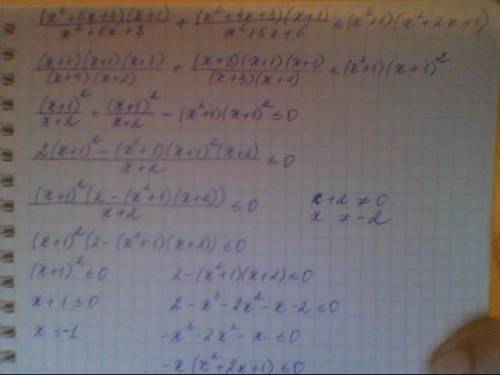 (x²+5x+4)(x+1)/(x²+6x+8) + (x²+4x+3)(x+1)/(x²+5x+6) ≤ (x²+1)(x²+2x+1)
(x+4)(x+1)(x+1)/((x+4)(x+2)) + (x+3)(x+1)(x+1)/((x+3)(x+2)) ≤ (x²+1)(x+1)²
(x+1)²/(x+2) + (x+1)²/(x+2) - (x²+1)(x+1)² ≤ 0
(2(x+1)² - (x²+1)(x+1)²(x+2))/(x+2) ≤ 0
(x+1)²(2-(x²+1)(x+2))/(x+2) ≤ 0 x+2 ≠ 0
x ≠ -2
(x+1)²(2-(x²+1)(x+2)) ≤ 0
(x+1)² ≤ 0 2-(x²+1)(x+2) ≤ 0
x+1 ≤ 0 2-x³-2x²-x-2 ≤ 0
x ≤ -1 -x³-2x²-x ≤ 0
-x(x²+2x+1) ≤ 0